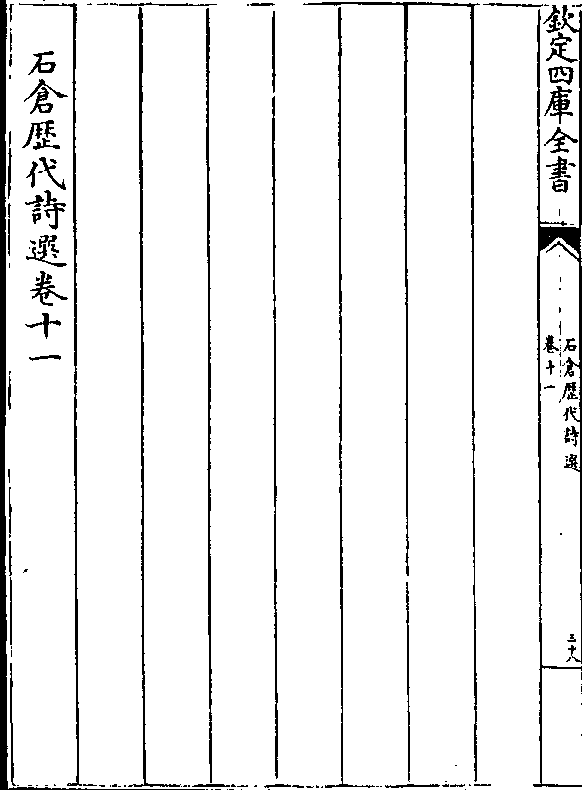 欽定四庫全書
石倉歷代詩選
卷十一
三十八
石倉歷代詩選卷十一